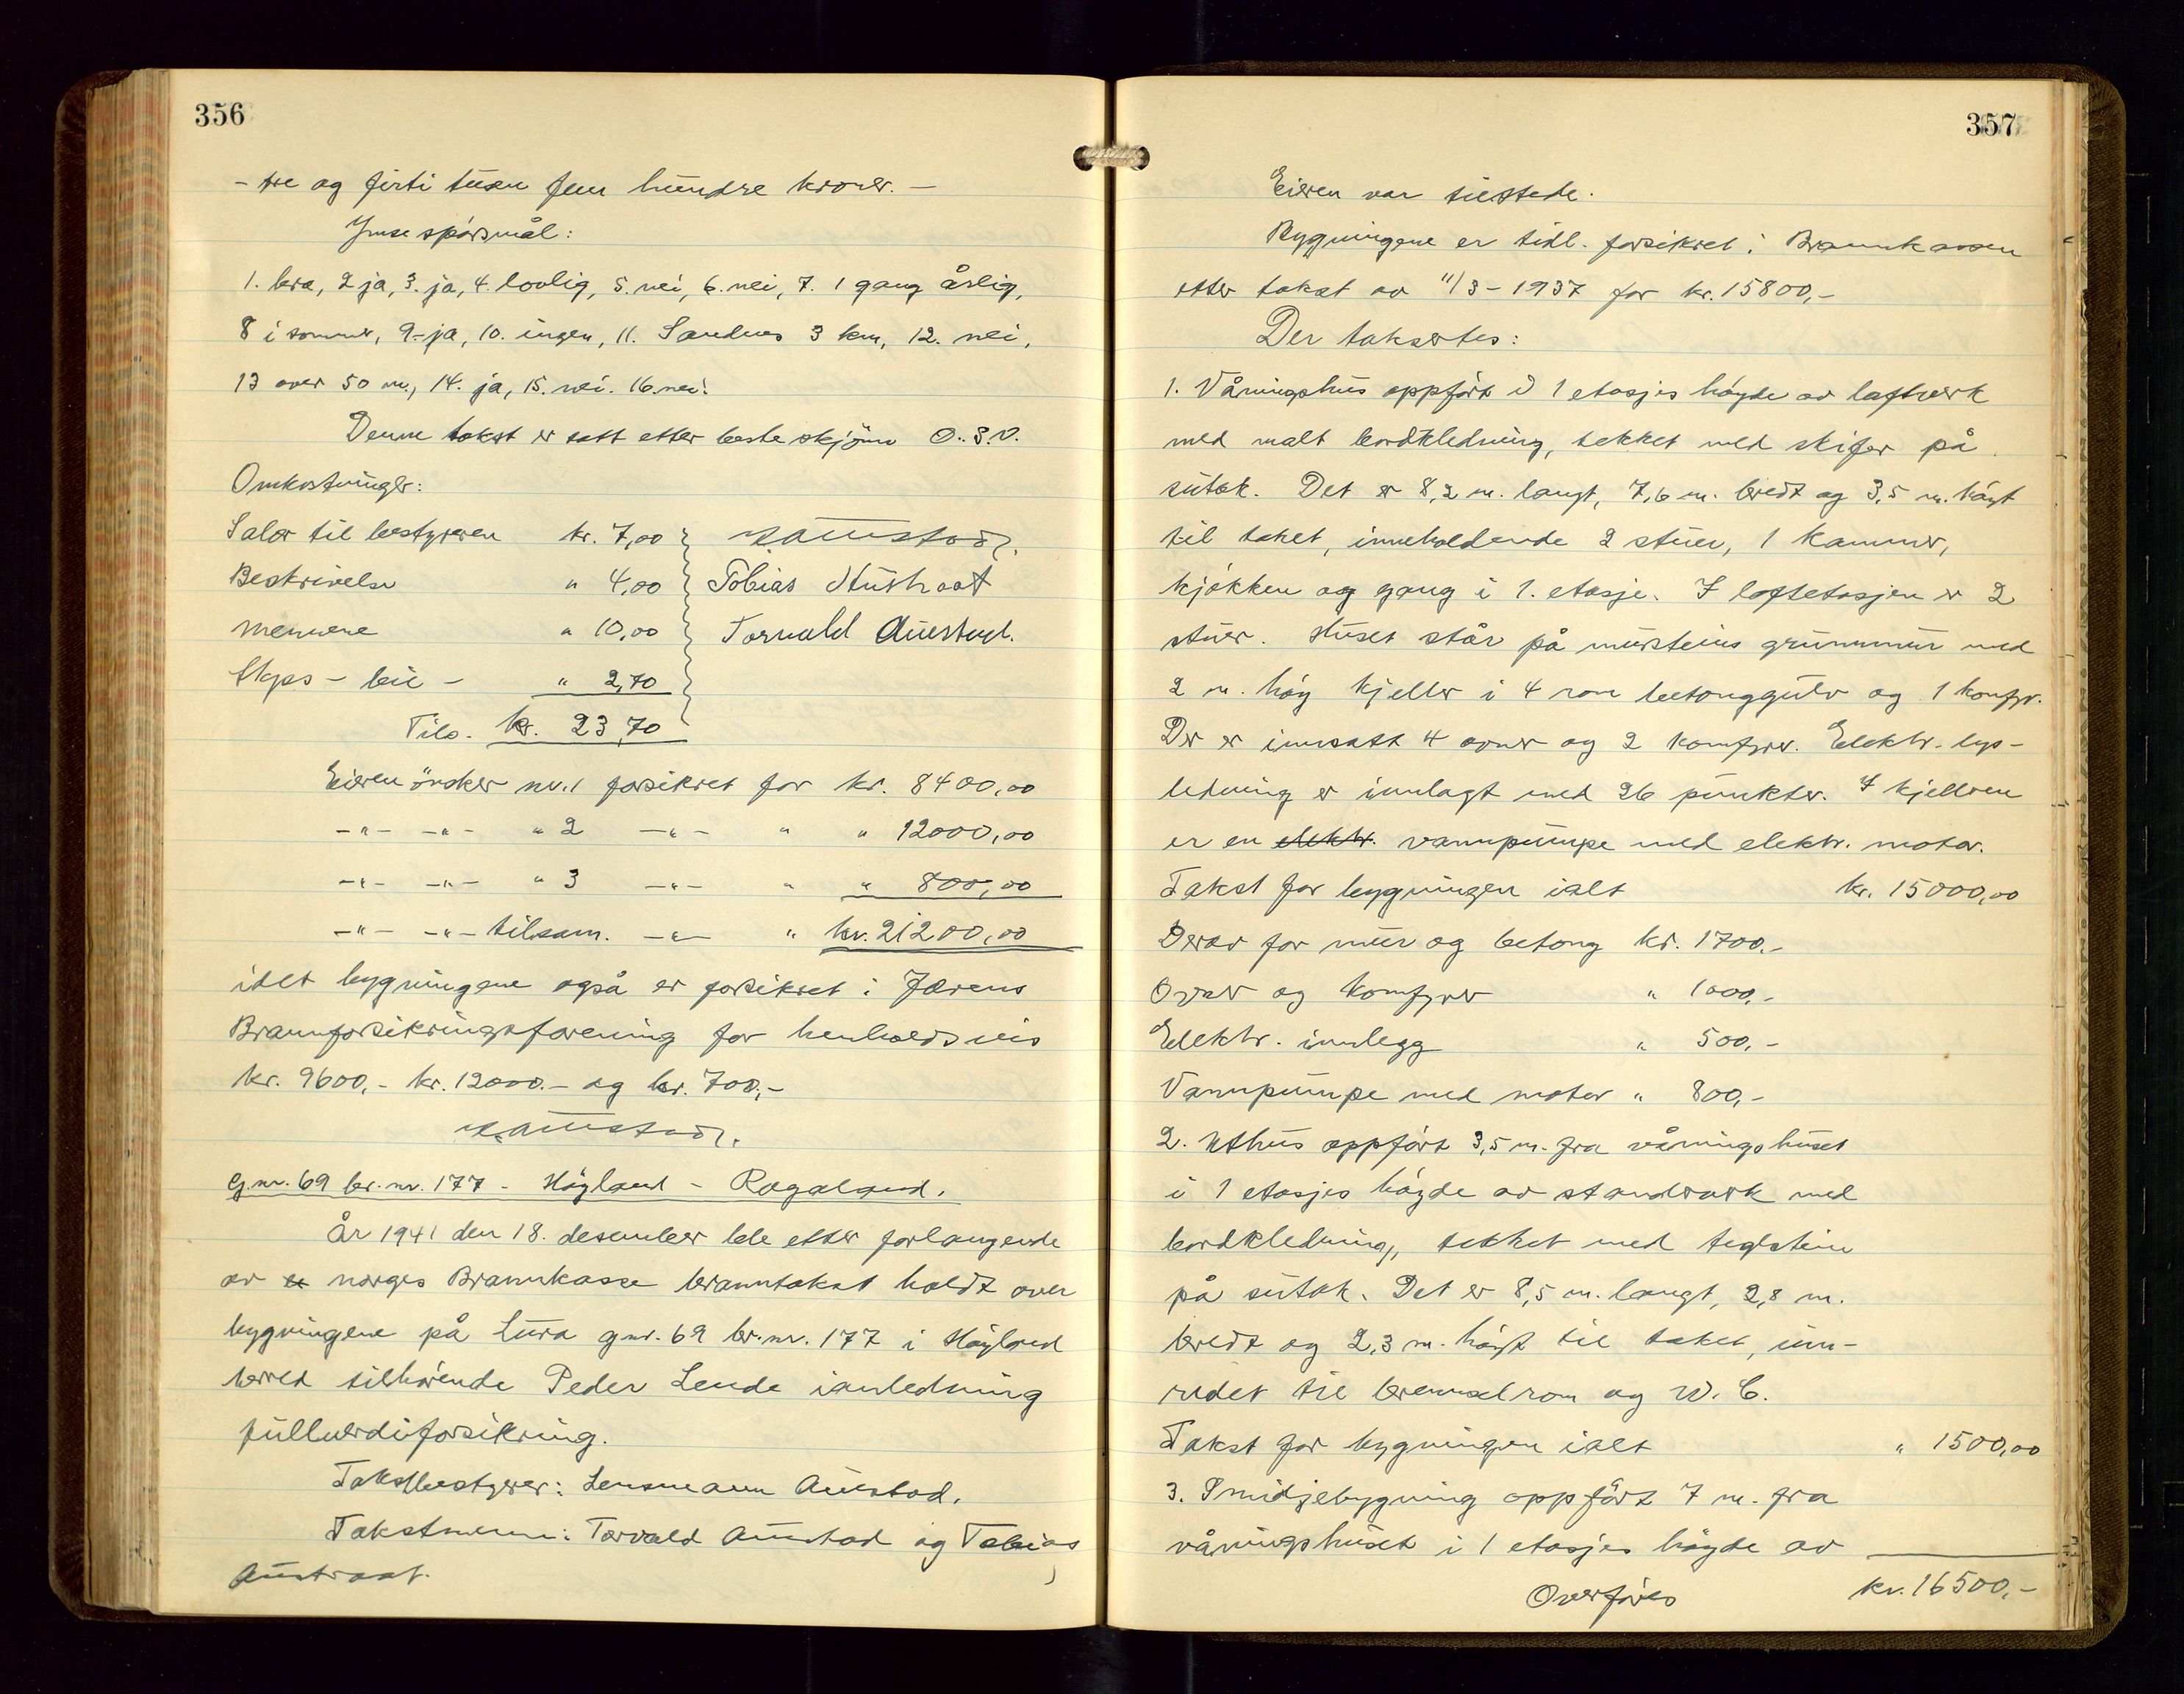 356
- tre og firti tusen fem hundre kroner. -
Ymse spörsmål:
1. bra, 2 ja, 3. ja, 4. lovlig, 5. nei, 6. nei, 7. 1 gang årlig,
8 i sommer, 9. ja, 10. ingen, 11. Sandnes 3 km, 12. nei,
13 over 50 m., 14. ja, 15. nei. 16. nei.
Denne takst er satt etter beste skjönn O.S.V.
Omkostninger:
Salær til bestyreren kr. 7,00
Beskrivelse " 4,00 Tobias Austraat
mennene " 10,00 Torvald Auestad.
Skyss - bil - " 2,70
Tils. kr. 23,70
Eieren önsker nr. 1 forsikret for kr. 8400,00
-"- -"- " 2 -"- " " 12000,00
-"- -"- " 3 -"- " " 800,00
-"- -"- tilsam. -"- " kr. 21200,00
idet bygningene også er forsikret i Jærens
Brannforsikringsforening for henholdsvis
kr. 9600,- kr. 12000.- og kr. 700,-
G.nr. 69 br.nr. 177 - Höyland - Rogaland.
År 1941 den 18. desember ble etter forlangende
av Norges Brannkasse branntakst holdt over
bygningene på Lura gnr. 69 br.nr. 177 i Höyland
herred tilhörende Peder Lende i anledning
fullverdiforsikring.
Takstbestyrer: Lensmann Auestad.
Takstmenn: Torvald Auestad og Tobias
Austraat.
357
Eieren var tilstede.
Bygningene er tidl. forsikret i Brannkassen
etter takst av 11/3 - 1937 for kr. 15800,-
Der taksertes:
1. Våningshus oppfört i 1 etasjes höyde av laftverk
med malt bordkledning, tekket med skifer på
sutak. Det er 8,2 m. langt, 7,6 m. bredt og 3,5 m. höyt
til taket, inneholdende 2 stuer, 1 kammer,
kjökken og gang i 1. etasje. I loftetasjen er 2
stuer. Huset står på mursteins grunnmur med
2 m. höy kjeller i 4 rom betonggulv og 1 komfyr.
Der er innsatt 4 ovner og 2 komfyrer. Elektr. lys-
ledning er innlagt med 26 punkter. I kjelleren
er en elektr. vannpumpe med elektr. motor.
Takst for bygningen ialt kr. 15000,00
Derav for mur og betong kr. 1700,-
Ovner og komfyrer " 1000,-
Elektr. innlegg " 500,-
Vannpumpe med motor " 800,-
2. Uthus oppfört 3,5 m. fra våningshuset
i 1 etasjes höyde av standverk med
bordkledning, tekket med teglstein
på sutak. Det er 8,5 m. langt, 2,8 m.
bredt og 2,3 m. höyt til taket, inn-
redet til brenselrom og W.C.
Takst for bygningen ialt " 1500,00
3. Smidjebygning oppfört 7 m. fra
våningshuset i 1 etasjes höyde av
Overföres kr. 16500,-